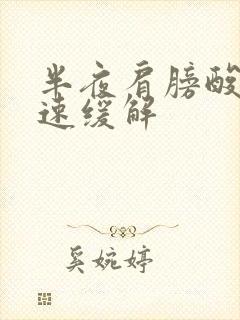 半夜肩膀酸
速缓解
奚婉婷